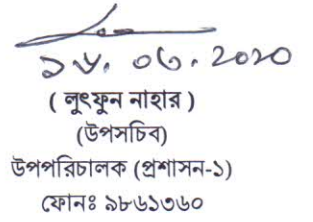 ১৮. ০৬. ২০২০
( লুৎফুন নাহার )
(উপসচিব)
উপপরিচালক (প্রশাসন-১)
ফোনঃ ৯৮৬১৩৬০